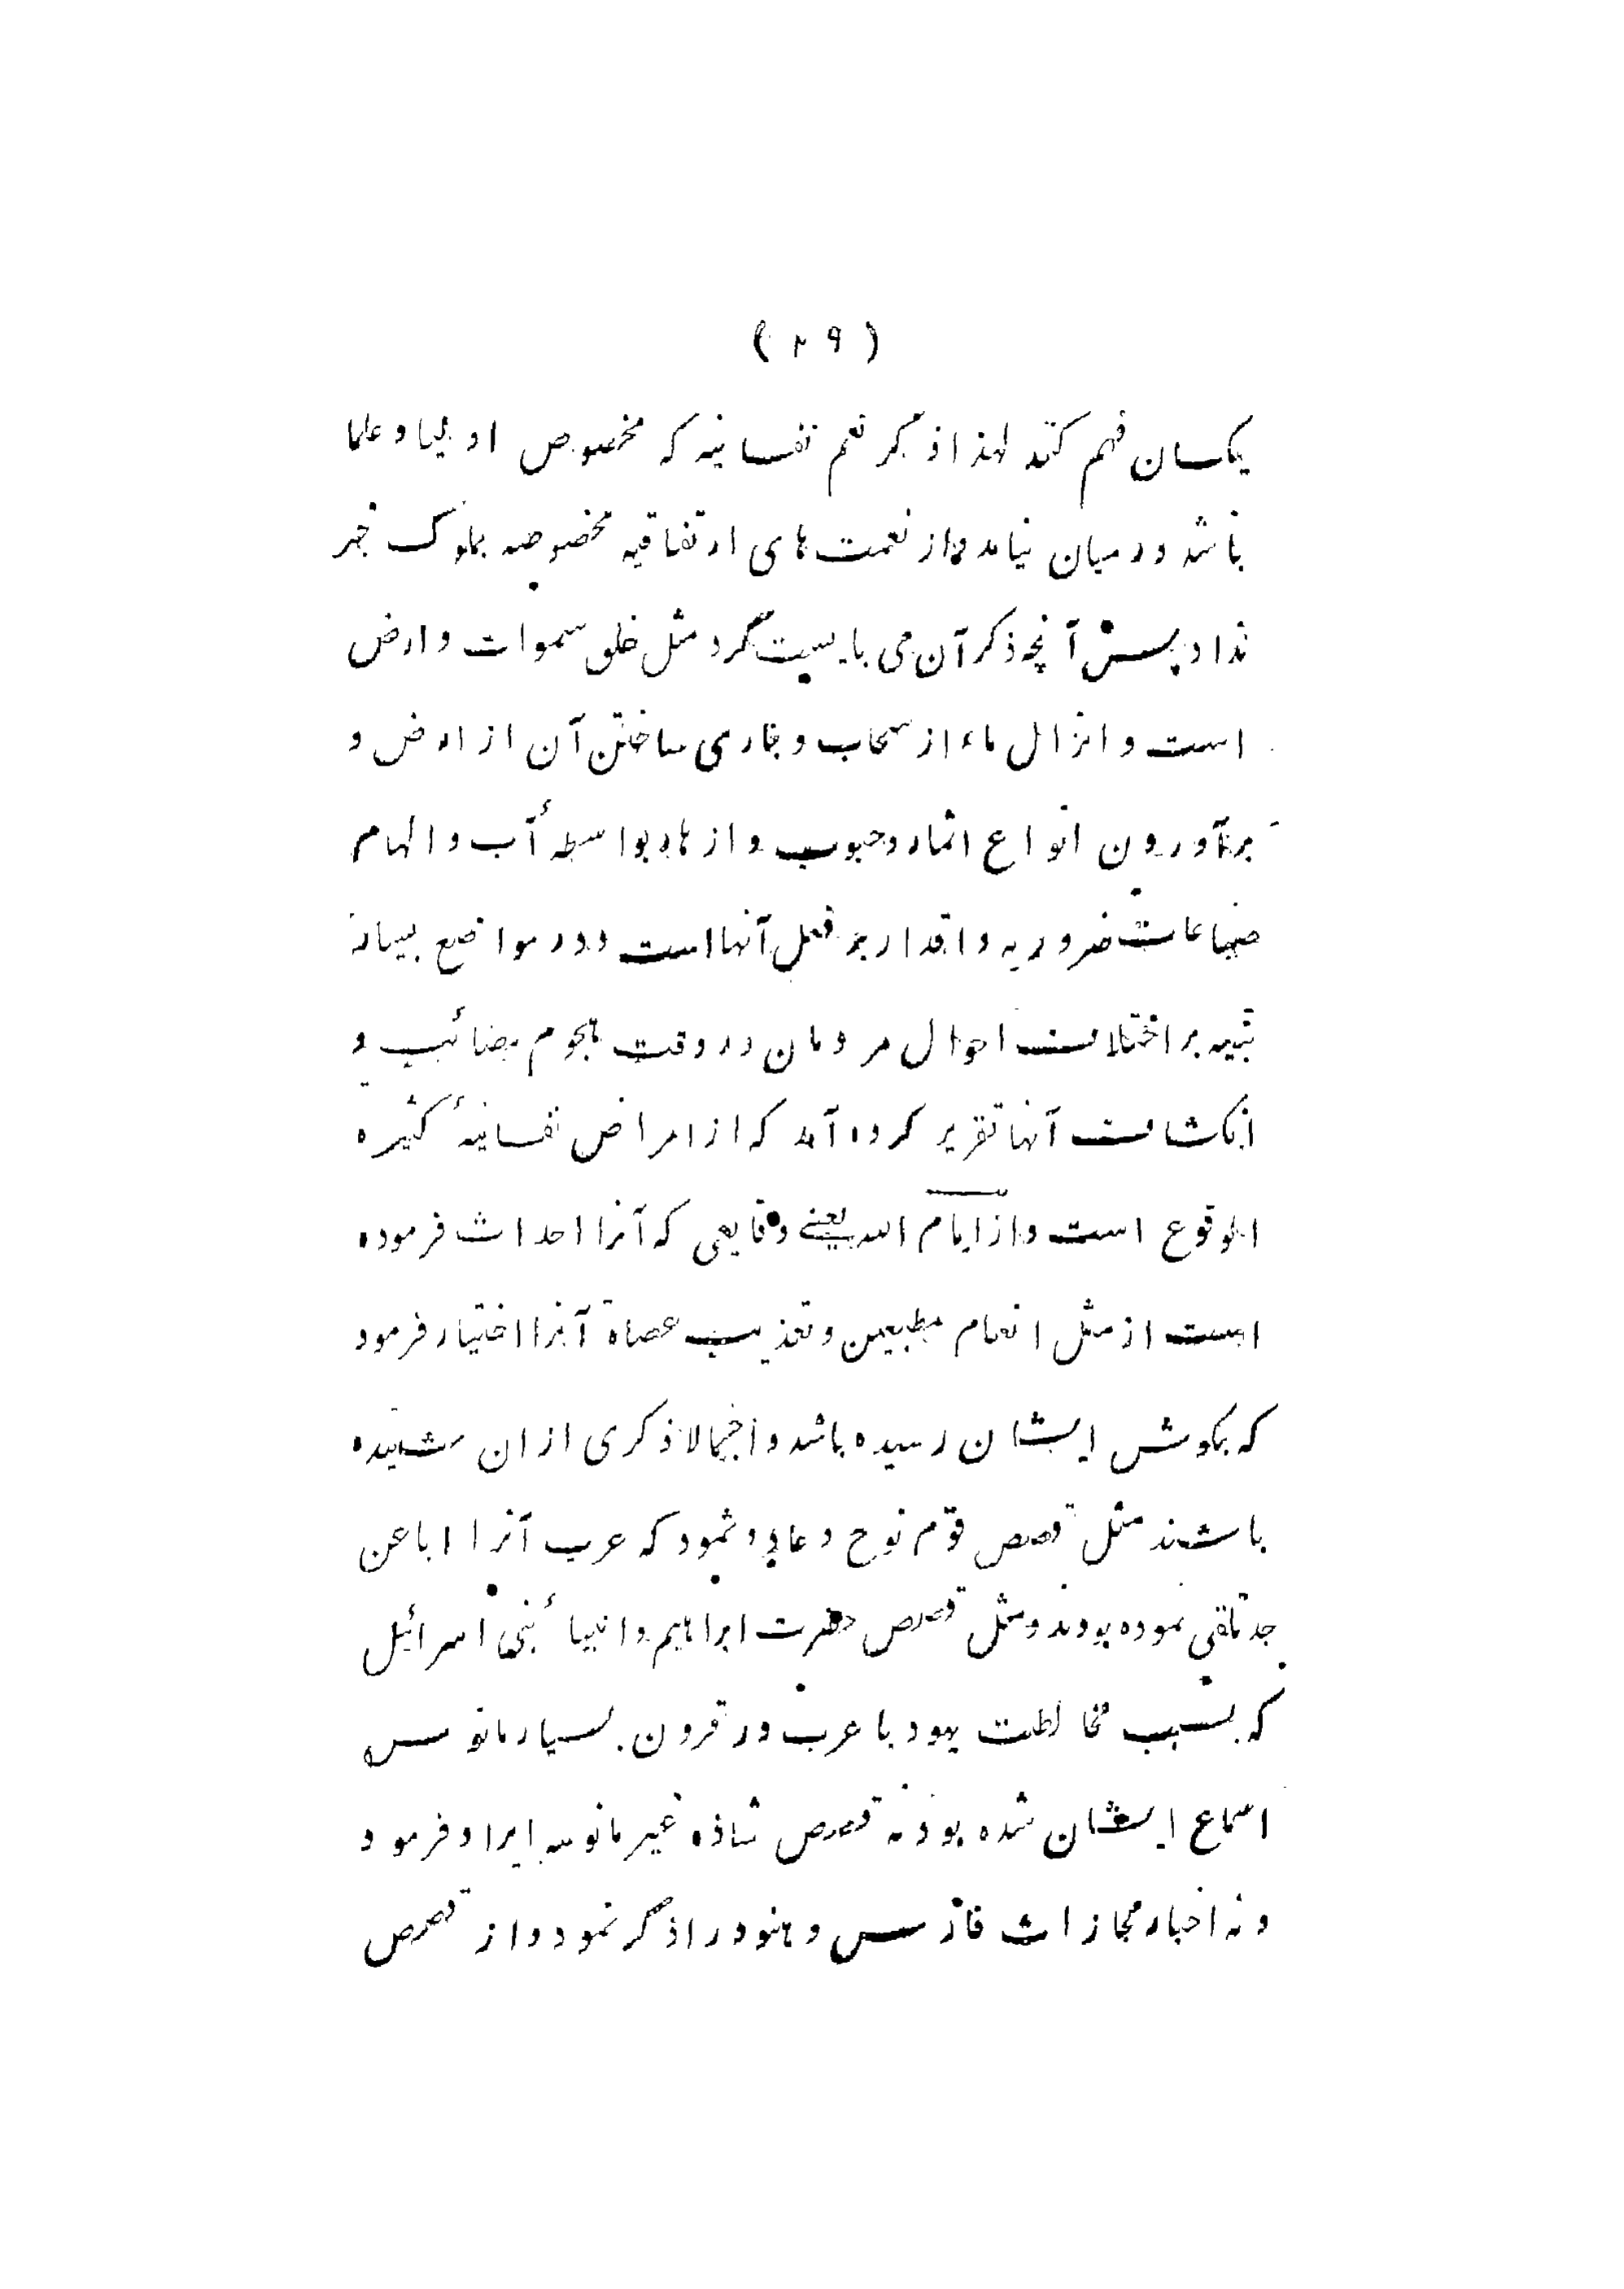 ( ۲۹ )
یکسان فهم کنند لهذا ذکر نعم نفسانیه که مخصوص اولیا و علما
باشد درمیان نیامد و از نعمت‌های ارتفاقیه مخصوصه بملوک خبر
نداد پس آنچه ذکر آن می بایست کرد مثل خلق سموات و ارض
است و انزال ماء از سحاب و جاری ساختن آن از ارض و
برآوردن انواع اثمار و حبوب و ازهار بواسطهٔ آب و الهام
صناعات ضروریه و اقدار بر فعل آنها است و در مواضع بسیار
تنبیه بر اختلاف احوال مردمان در وقت هجوم مصائب و
انکشاف آنها تقریر کرده آمد که از امراض نفسانیهٔ کثیره
الوقوع است و از ایام الله یعنے وقایعی که آنرا احداث فرموده
است از مثل انعام مطیعین و تعذیب عصاة آنرا اختیار فرمود
که بگوش ایشان رسیده باشد و اجمالا ذکری از ان شنیده
باشند مثل قصص قوم نوح و عاد و ثمود که عرب آنرا ابا عن
جد تلقی نموده بودند و مثل قصص حضرت ابراهیم و انبیاء بنی اسرائیل
که بسبب مخالطت یهود با عرب در قرون بسیار مانوس
اسماع ایشان شده بود نه قصص شاذه غیر مانوسه ایراد فرمود
و نه اخبار مجازات فارس و هنود را ذکر نمود و از قصص